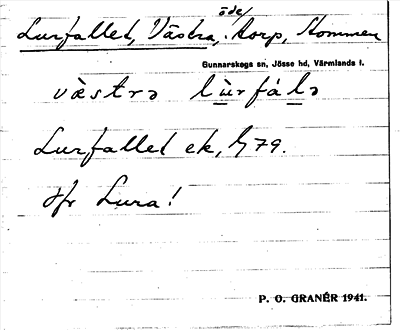 öde/
Lurfallet, Västra, torp, Stommen
Gunnarskogs sn, Jösse hd, Värmlands l.
västrə lùrfálə
Lurfallet ek, 79.
Jfr Lura!
P. O. GRANÉR 1941.